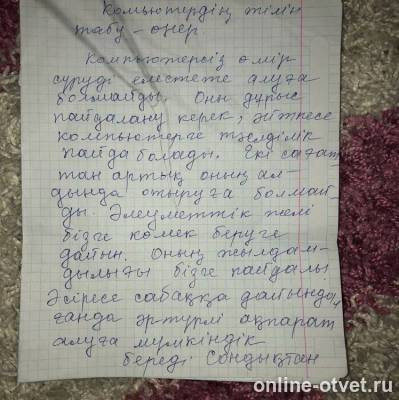 Комьютердің тілін
табу – өнер
Компьютерсіз өмір
суруді елестете алуға
болмайды. Оны дұрыс
пайдалану керек, әйтпесе
компьютерге тәелділік
пайда болады. Екі сағат
тан артық оның ал-
дында отыруға болмай-
ды. Әлеуметтік желі
бізге көмек беруге
дайын. Оның жылдам-
дылығы бізге пайдалы
Әсіресе сабаққа дайындал
ғанда әртүрлі ақпарат
алуға мүмкіндік
береді Сондықтан
online-otvet.ru